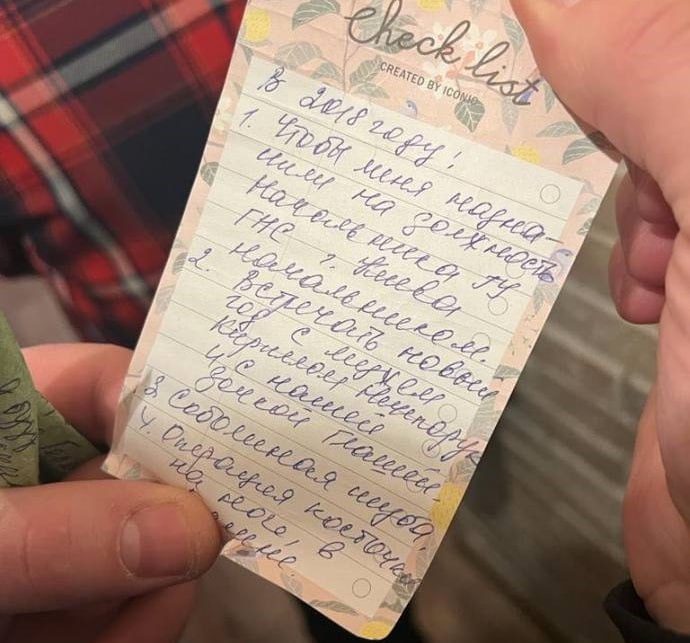 check list
CREATED BY ICONIC
В 2018 году!
1. Чтобы меня назна-
чили на должность
начальника ГУ
ГНС г. Киева
начальником.
2. Встречать новый
год с мужем
Кириллом
и с нашей
дочкой Машей
3. Соболиная шуба,
4. Операция косточки
на ноге, в